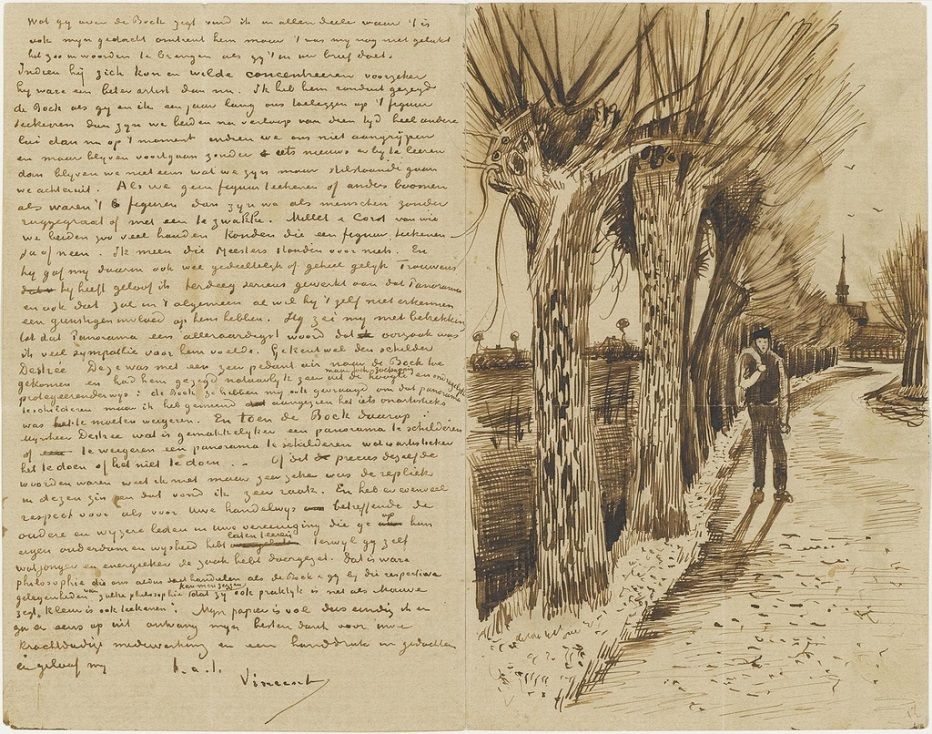 Wat gy over de Bock zegt vind ik in allen deele waar 't is
ook myn gedacht omtrent hem maar 't was my nog niet gelukt
het zoo in woorden te brengen als gy 't in uw brief doet.
Indien hij zich kon en wilde concentreeren voorzeker
hy ware een beter artist dan nu. Ik heb hem ronduit gezegd
de Bock als gy en ik een jaar lang ons toeleggen op 't figuur
teekenen dan zyn we beiden na verloop van dien tyd heel andere
lui dan nu op 't moment indien we ons niet aangrypen
en maar blyven voortgaan zonder iets nieuws er by te leeren
dan blyven we niet eens wat we zyn maar stilstaande gaan
we achteruit. Als we geen figuur teekenen of anders boomen
als waren 't figuren dan zyn we als menschen zonder
ruggegraat of met een te zwakke. Millet & Corot van wie
we beiden zoo veel houden konden die een figuur teekenen
ja of neen. Ik meen die Meesters stonden voor niets. En
hy gaf my daarin ook wel gedeeltelyk of geheel gelyk Trouwens
hy heeft geloof ik terdeeg serieus gewerkt aan dat Panorama
en ook dat zal in 't algemeen al wil hy 't zelf niet erkennen
een gunstigen invloed op hem hebben. Hy zei my met betrekking
tot dat Panorama een alleraardigst woord dat oorzaak was
ik veel sympathie voor hem voelde. Gy kent wel den schilder
Destrée. Deze was met een zeer pedant air naar de Bock toe
gekomen en had hem gezegd natuurlyk zeer uit de hoogte en
protegeerenderwys: de Bock ze hebben my ook gevraagd om dat panorama
te schilderen maar ik heb gemeend aangezien het iets onartistieks
was het te moeten weigeren. En toen de Bock daarop:
mynheer Destrée wat is gemakkelyker een panorama te schilderen
of te weigeren een panorama te schilderen wat is artistieker
het te doen of het niet te doen. . . Of dit precies dezelfde
woorden waren weet ik niet maar zeer zeker was de repliek
in dezen zin en dat vond ik zeer raak. En heb er evenveel
respect voor als voor Uwe handelwys betreffende de
oudere en wyzere leden in uwe vereeniging die ge hun
eigen ouderdom en wysheid hebt laten terwyl gy zelf
wat jonger en energieker de zaak hebt doorgezet. Dat is ware
philosophie die ons aldus doet handelen als de Bock & gy by die respectieve
gelegenheden van zulke philosophie kan men zeggen dat zy ook praktyk is net als Mauve
zegt, kleur is ook teekenen. Myn papier is vol dus eindig ik en
ga er eens op uit ontvang myn besten dank voor uwe
krachtdadige medewerking en een handdruk in gedachten
en geloof my
t. à. t.
Vincent